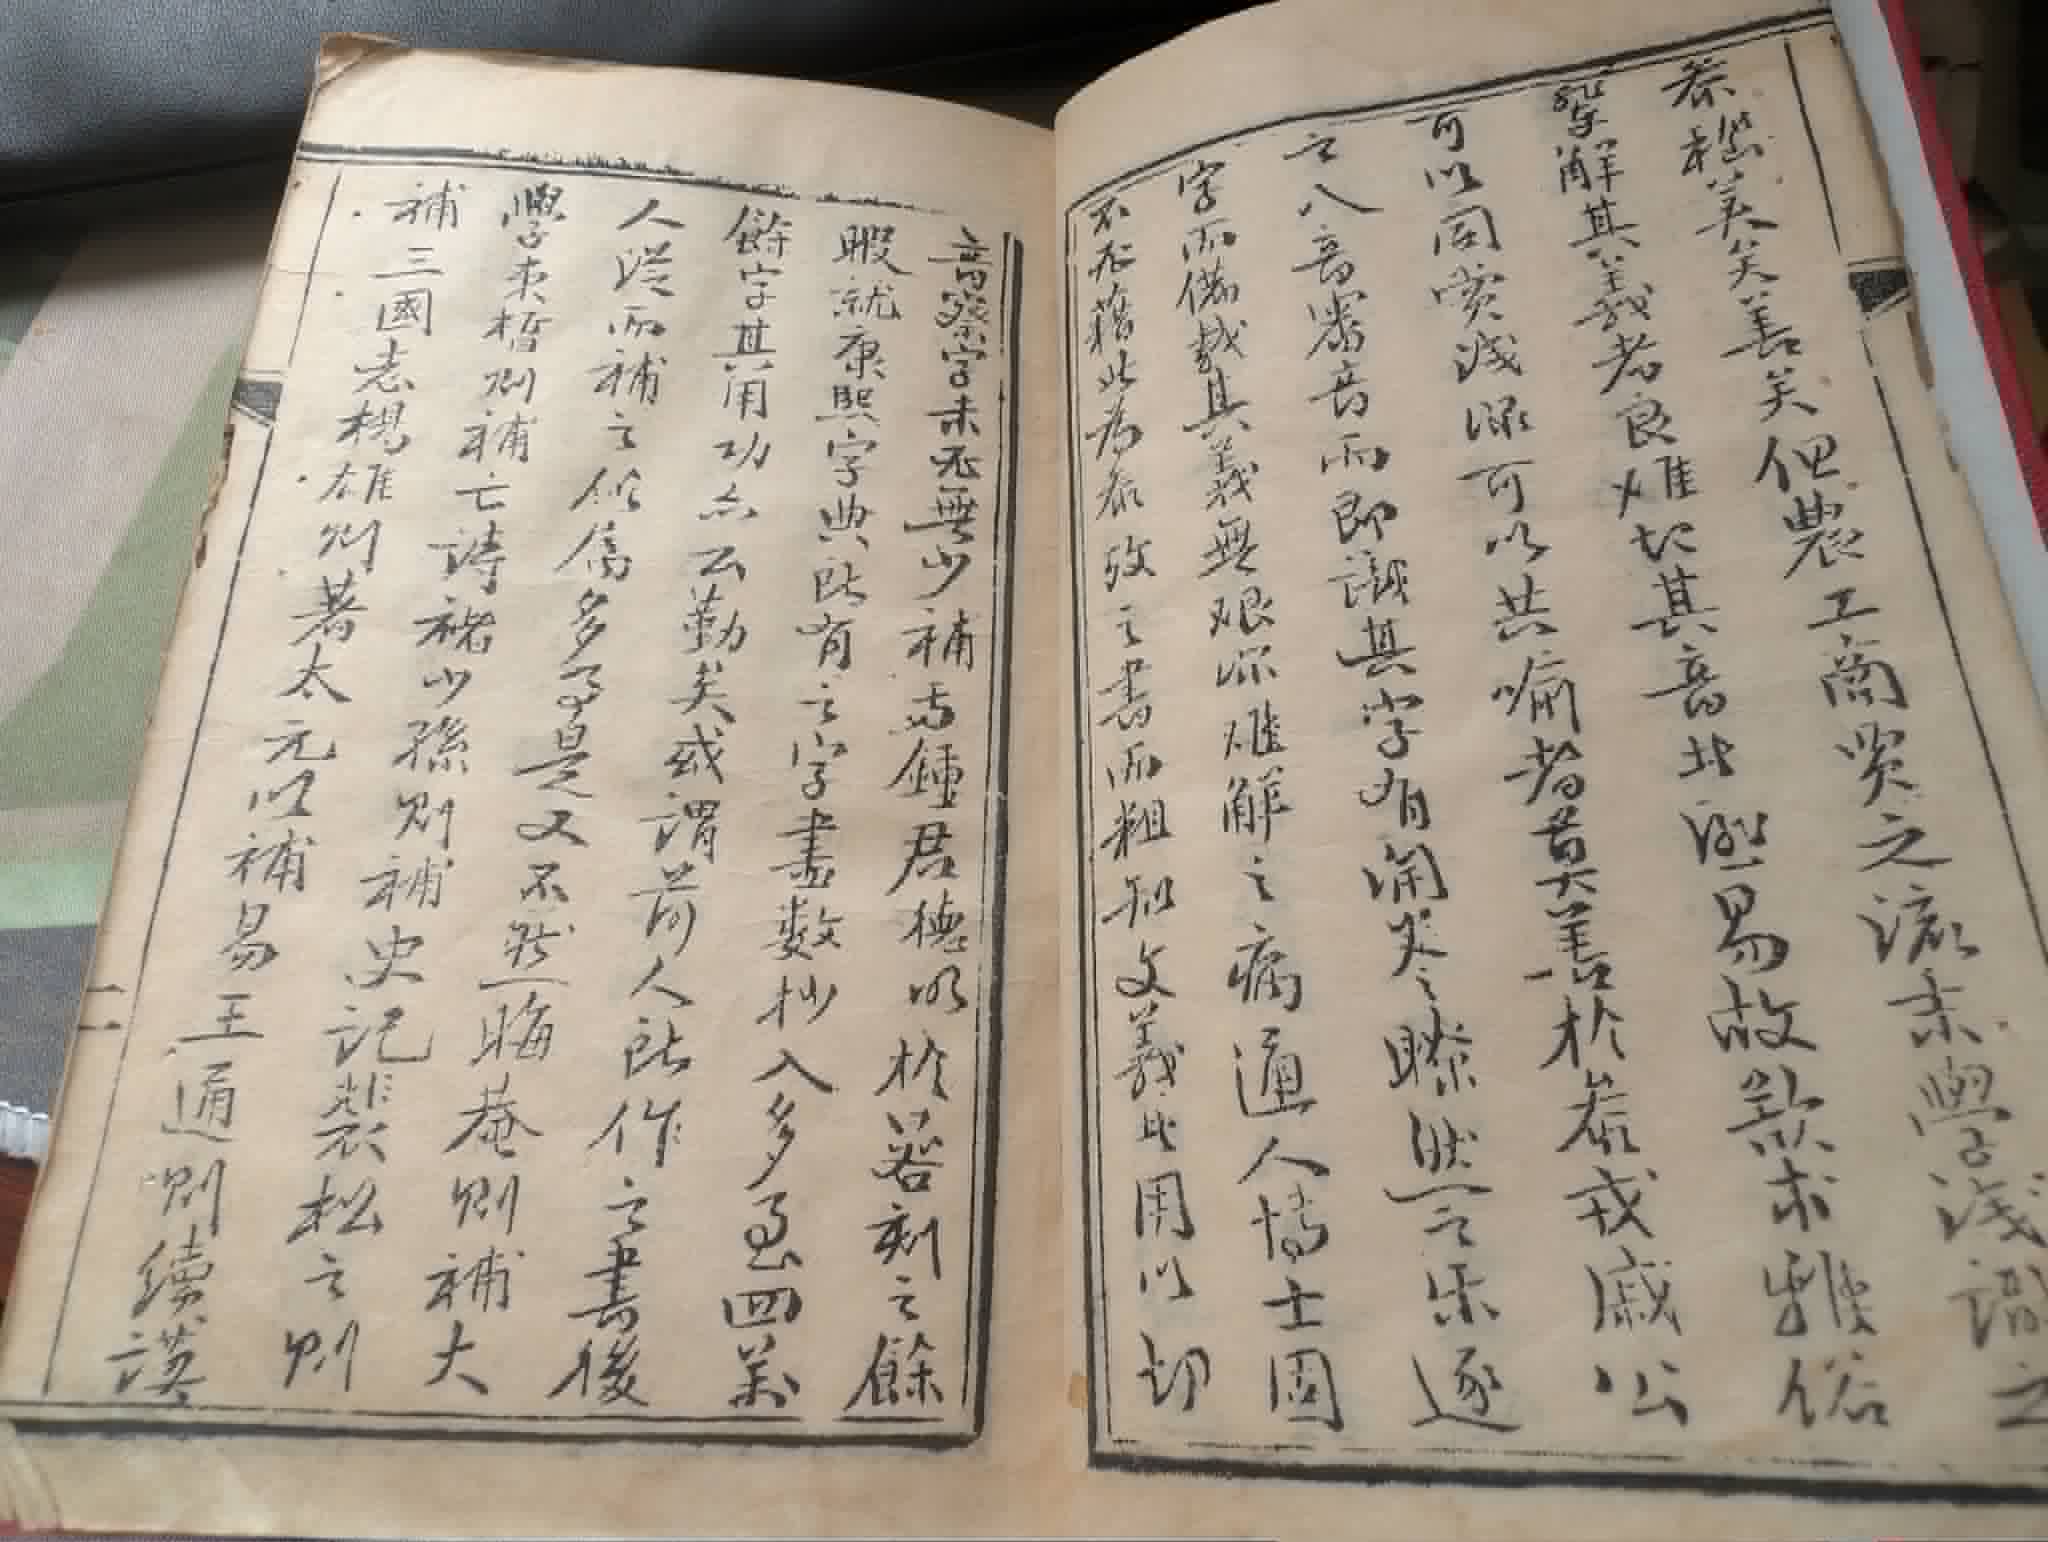 泰樵美矣善矣但農工商賈之流未學淺識之
輩解其義者良难切其音北熙易故欲求雅俗
可以同賞淺深可以共喻者莫善於泰戎戚公
之八音察音而即識其字有闲卷之瞭然之樂逐
字而備載其義無艰深难解之病通人博士固
不必藉此為泰攷之書而粗知文義此用以切
音察字未必無少補焉鍾君德明於簭刻之餘
暇就康熙字典所有之字畫數抄入多至四萬
餘字其用功亦云勤矣或謂前人所作之書後
人從而補之似属多事是又不然晦菴則補大
學束晳則補亡詩褚少孫則補史記裴松之則
補三國志楊雄則著太元以補易王通則續謨
二